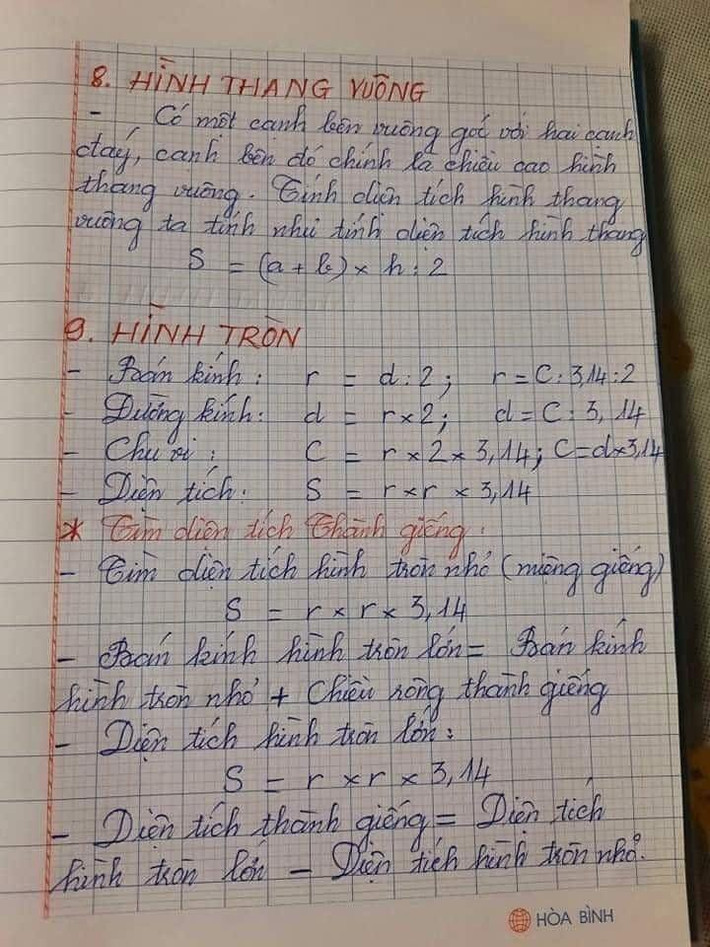 8. HÌNH THANG VUÔNG
- Có một cạnh bên vuông góc với hai cạnh
đáy, cạnh bên đó chính là chiều cao hình
thang vuông. Tính diện tích hình thang
vuông ta tính như tính diện tích hình thang
S = (a + b) × h : 2
9. HÌNH TRÒN
- Bán kính: r = d : 2; r = C : 3,14 : 2
- Đường kính: d = r × 2; d = C : 3,14
- Chu vi: C = r × 2 × 3,14; C = d × 3,14
- Diện tích: S = r × r × 3,14
* Tìm diện tích thành giếng:
- Tìm diện tích hình tròn nhỏ (miệng giếng)
S = r × r × 3,14
- Bán kính hình tròn lớn = Bán kính
hình tròn nhỏ + Chiều rộng thành giếng
- Diện tích hình tròn lớn:
S = r × r × 3,14
- Diện tích thành giếng = Diện tích
hình tròn lớn - Diện tích hình tròn nhỏ.
HÒA BÌNH